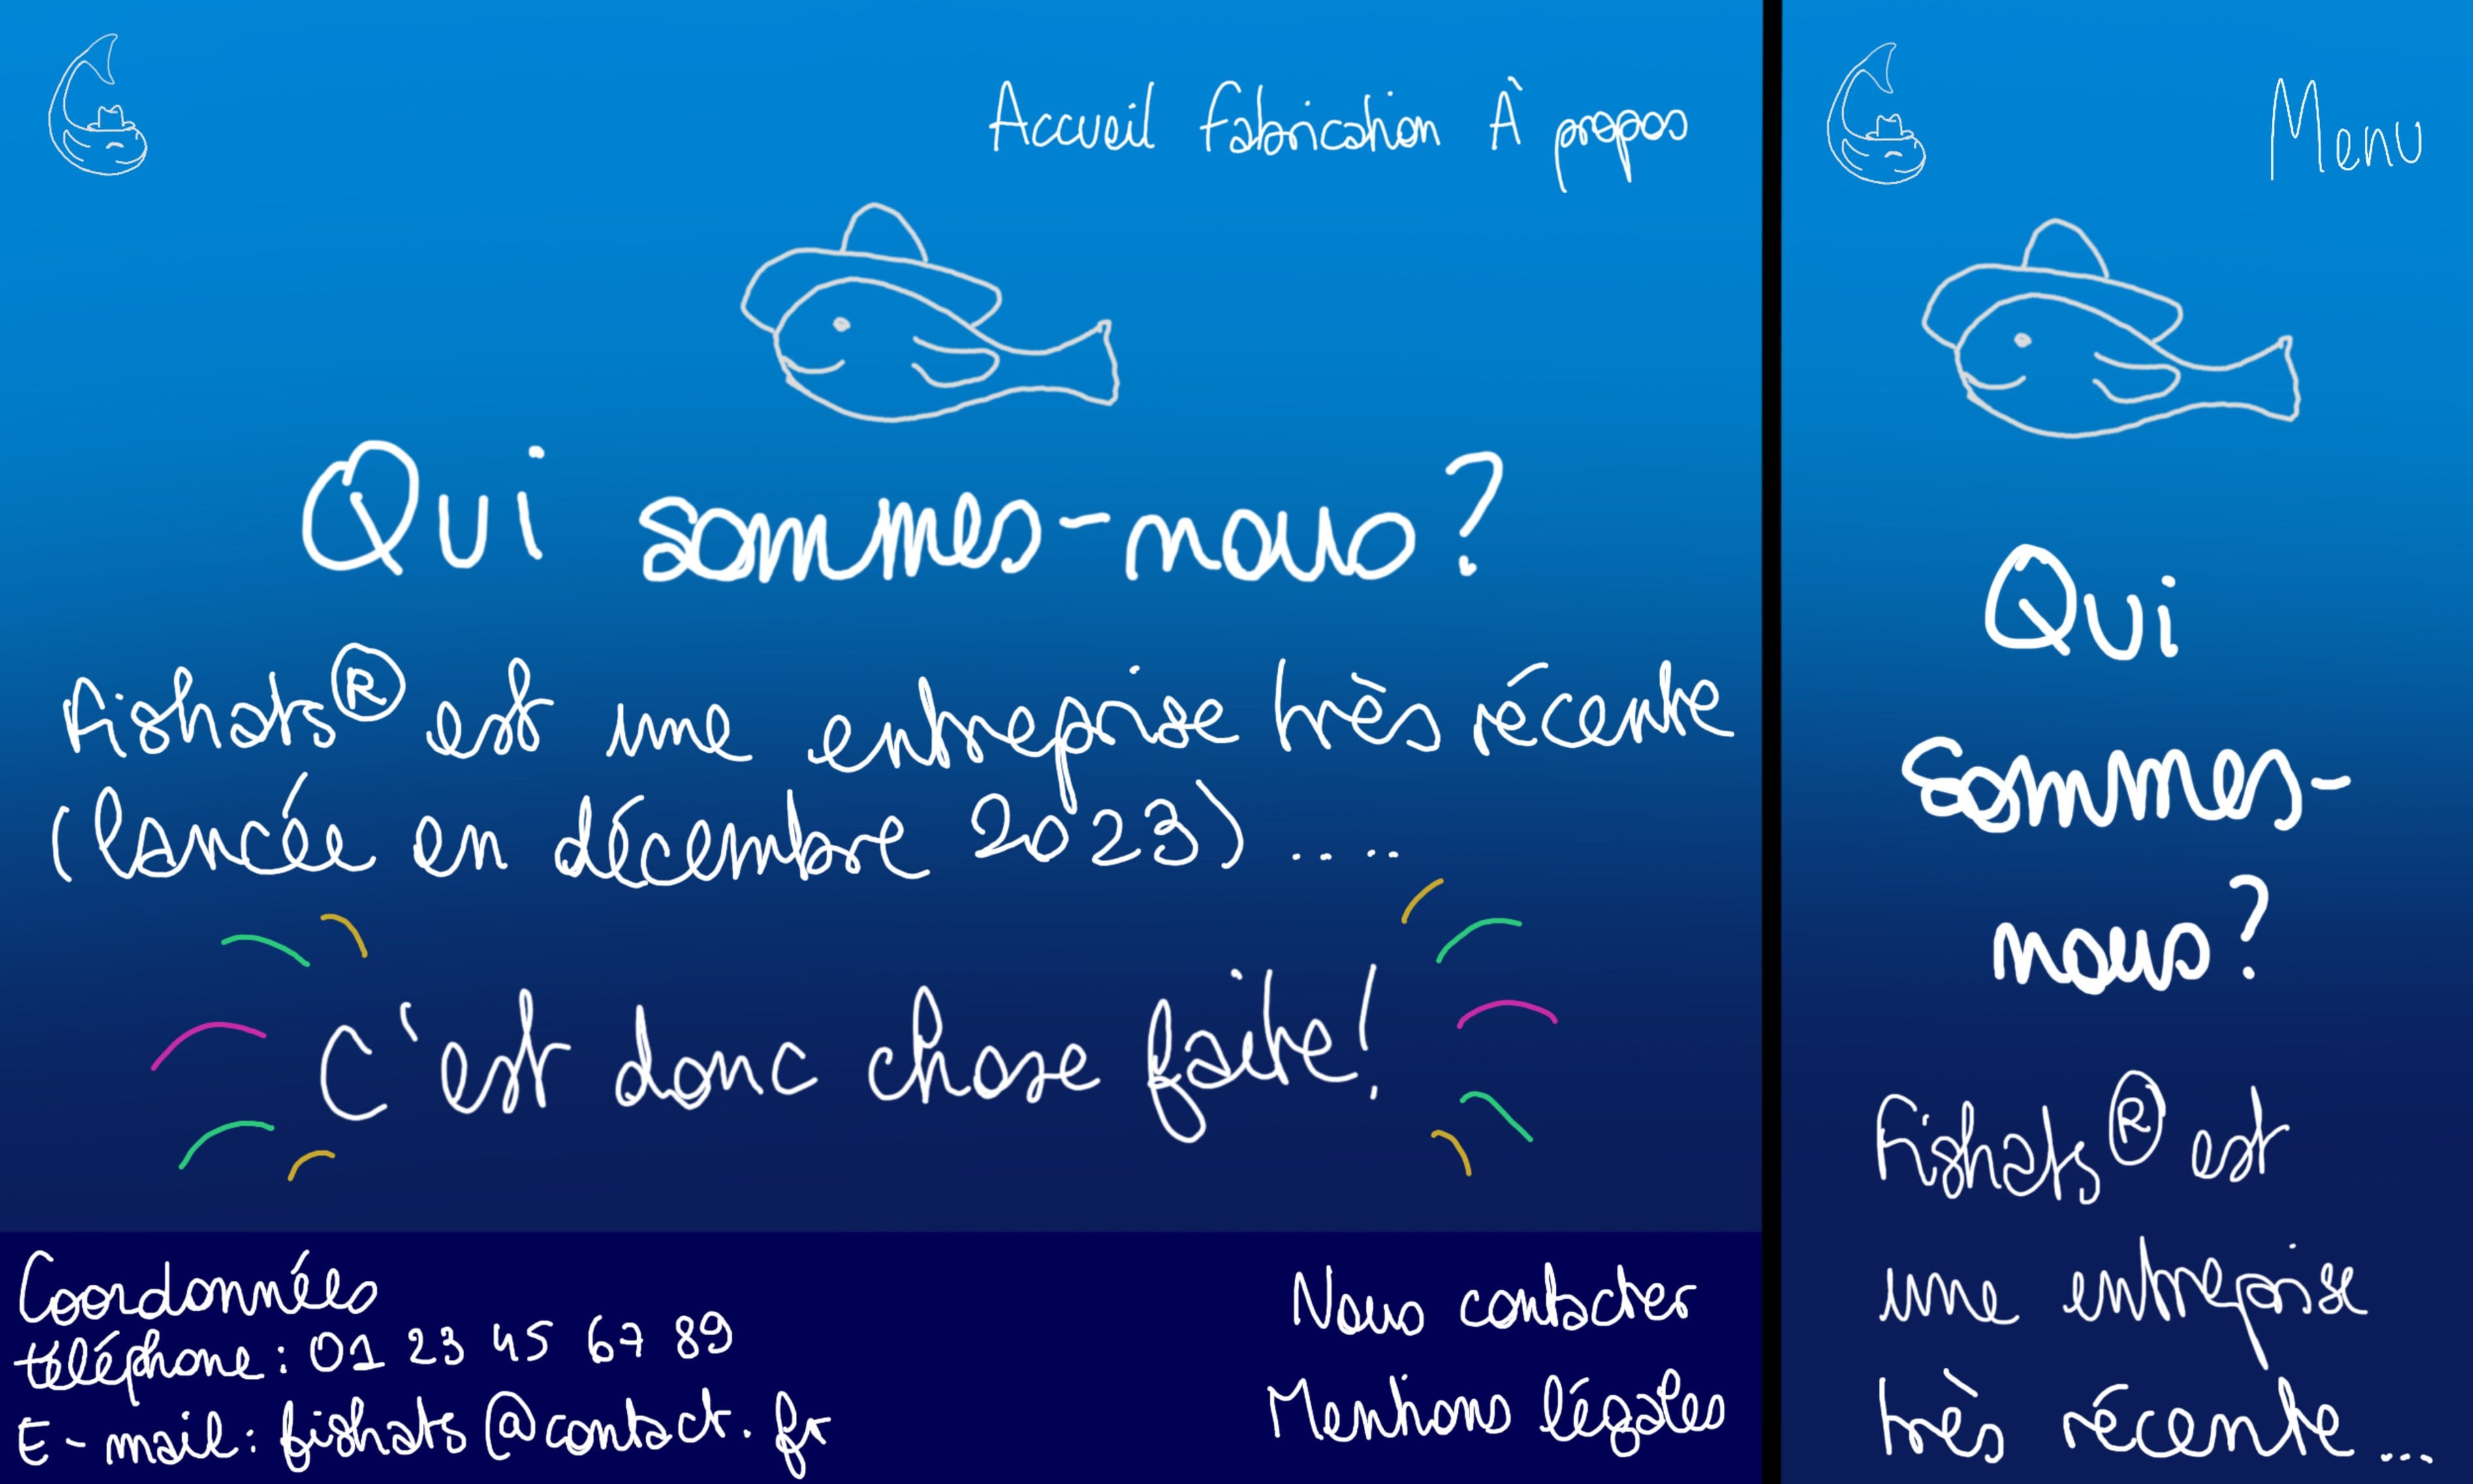 Accueil Fabrication À propos
Qui sommes-nous?
Fishats® est une entreprise très récente
(lancée en décembre 2023)....
C'est donc chose faite!
Coordonnées
téléphone: 01 23 45 67 89
E-mail: fishats@contact.fr
Nous contacter
Mentions légales
Menu
Qui
sommes-
nous?
Fishats® est
une entreprise
très récente...